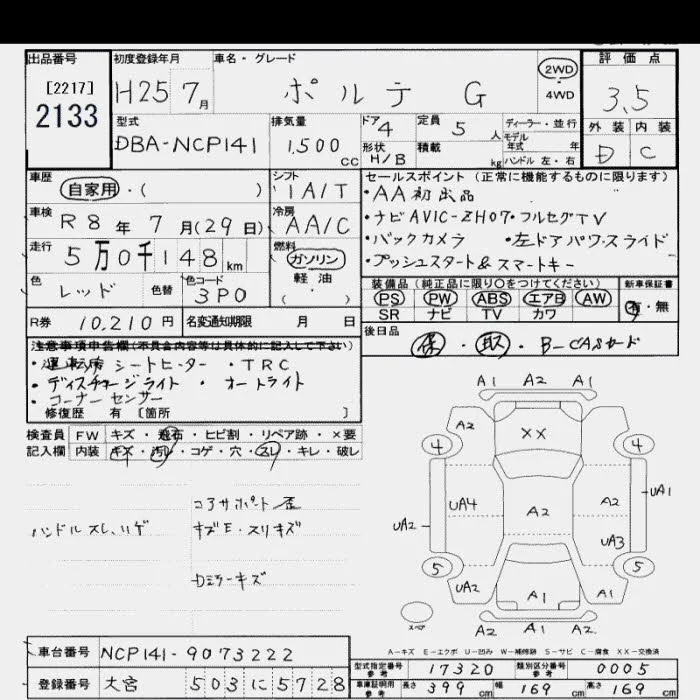 出品番号
[2217]
2133
初度登録年月
H25 7月
車名・グレード
ポルテ G
2WD
4WD
評価点
3.5
外装 内装
D C
型式
DBA-NCP141
排気量
1,500 cc
ドア 4
形状 H/B
定員 5 人
積載 kg
ディーラー・並行
モデル年式 年
ハンドル 左・右
車歴
自家用・( )
シフト
IA/T
車検
R8年7月(29日)
冷房
AA/C
走行
5万0千148km
燃料
ガソリン
軽油
( )
色
レッド
色替
色コード
3P0
R券
10,210円
名変通知期限 月 日
セールスポイント(正常に機能するものに限ります)
・AA初出品
・ナビAVIC-ZH07・フルセグTV
・バックカメラ ・左ドアパワースライド
・プッシュスタート&スマートキー
装備品(純正品に限り○をつけてください)
PS PW ABS エアB AW
SR ナビ TV カワ
新車保証書
有・無
後日品
保・取・B-CASカード
注意事項申告欄(不具合内容等は具体的に記入して下さい)
・運転席シートヒーター ・TRC
・ディスチャージライト ・オートライト
・コーナーセンサー
修復歴 有 [箇所 ]
検査員記入欄
FW キズ・飛石・ヒビ割・リペア跡・×要
内装 キズ・汚レ・コゲ・穴・スレ・キレ・破レ
コアサポート歪
ハンドルスレ、ハゲ
キズE・スリキズ
Dミラーキズ
A1 A2 A1
A2
XX
4 4
UA4
A2
A2
UA1
UA2
UA3
5 5
UA2
A1
A2
A2 A1 A2
スペア
A-キズ E-エクボ U-凹み W-補修跡 S-サビ C-腐食 XX-交換済
車台番号
NCP141-9073222
登録番号
大宮 503に5728
型式指定番号 参考
17320
類別区分番号 参考
0005
車庫証明用 参考
長さ 399cm 幅 169cm 高さ 169cm